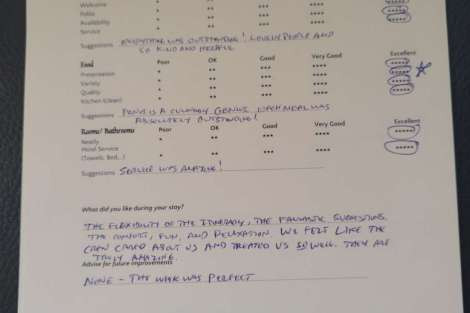 Welcome * ** *** **** *****
Polite * ** *** **** *****
Availability * ** *** **** *****
Service
Suggestions EVERYTHING WAS OUTSTANDING! LOVELY PEOPLE AND
SO KIND AND HELPFUL
Food Poor OK Good Very Good Excellent
Presentation * ** *** **** *****
Variety * ** *** **** *****
Quality * ** *** **** *****
Kitchen (clean) * ** *** **** *****
Suggestions IS A CULINARY GENIUS. EACH MEAL WAS
ABSOLUTELY OUTSTANDING!
Rooms/ Bathrooms Poor OK Good Very Good Excellent
Ready * ** *** **** *****
Hotel Service * ** *** **** *****
(Towels, Bed...)
Suggestions SERVICE WAS AMAZING!
What did you like during your stay?
THE FLEXIBILITY OF THE ITINERARY, THE FANTASTIC SUGGESTIONS,
THE COMFORT, FUN, AND RELAXATION. WE FELT LIKE THE
CREW CARED ABOUT US AND TREATED US SO WELL. THEY ARE
TRULY AMAZING.
Advise for future improvements
NONE - THE WEEK WAS PERFECT